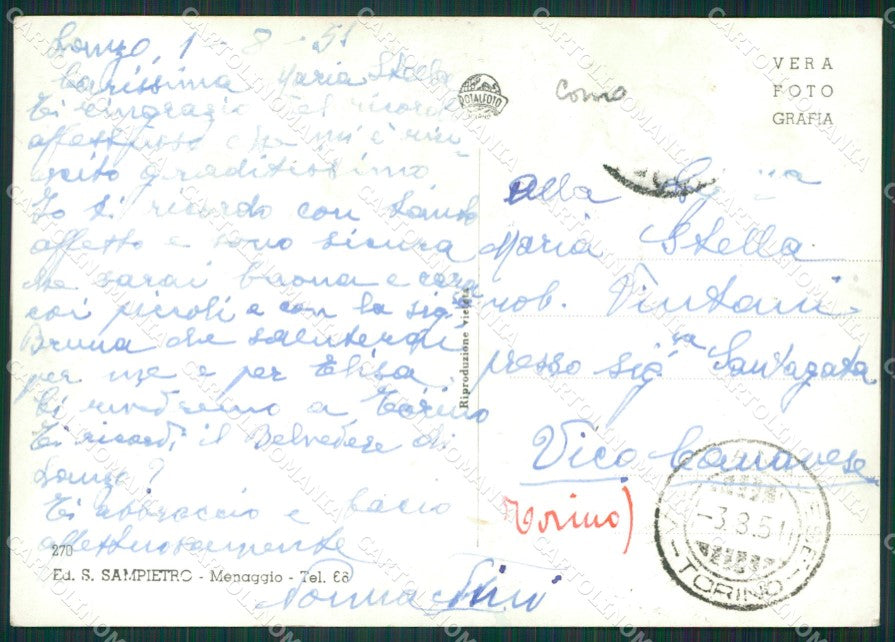 Lanzo, 1 - 8 - 51
Carissima Maria Stella
Ti ringrazio del ricordo
affettuoso che mi è riu-
scito graditissimo
Io ti ricordo con tanto
affetto e sono sicura
che sarai buona e cara
coi piccoli e con la sig.
Bruna che saluterai
per me e per Elisa.
Ci rivedremo a Torino
Ti ricordi il Belvedere di
Lanzo?
Ti abbraccio e bacio
affettuosamente
Nonna Nini
270
Ed. S. SAMPIETRO - Menaggio - Tel. 68
Riproduzione vietata
TOTALFOTO
Como
VERA
FOTO
GRAFIA
Alla Sig.na
Maria Stella
nob. Vintani
presso sig.ra Santagata
Vico Canavese
Torino)
-3.8.51
TORINO
CARTOLINOMANIA